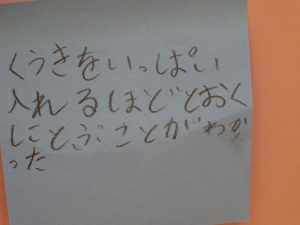 くうきをいっぱい
入れるほどとおく
にとぶことがわか
った